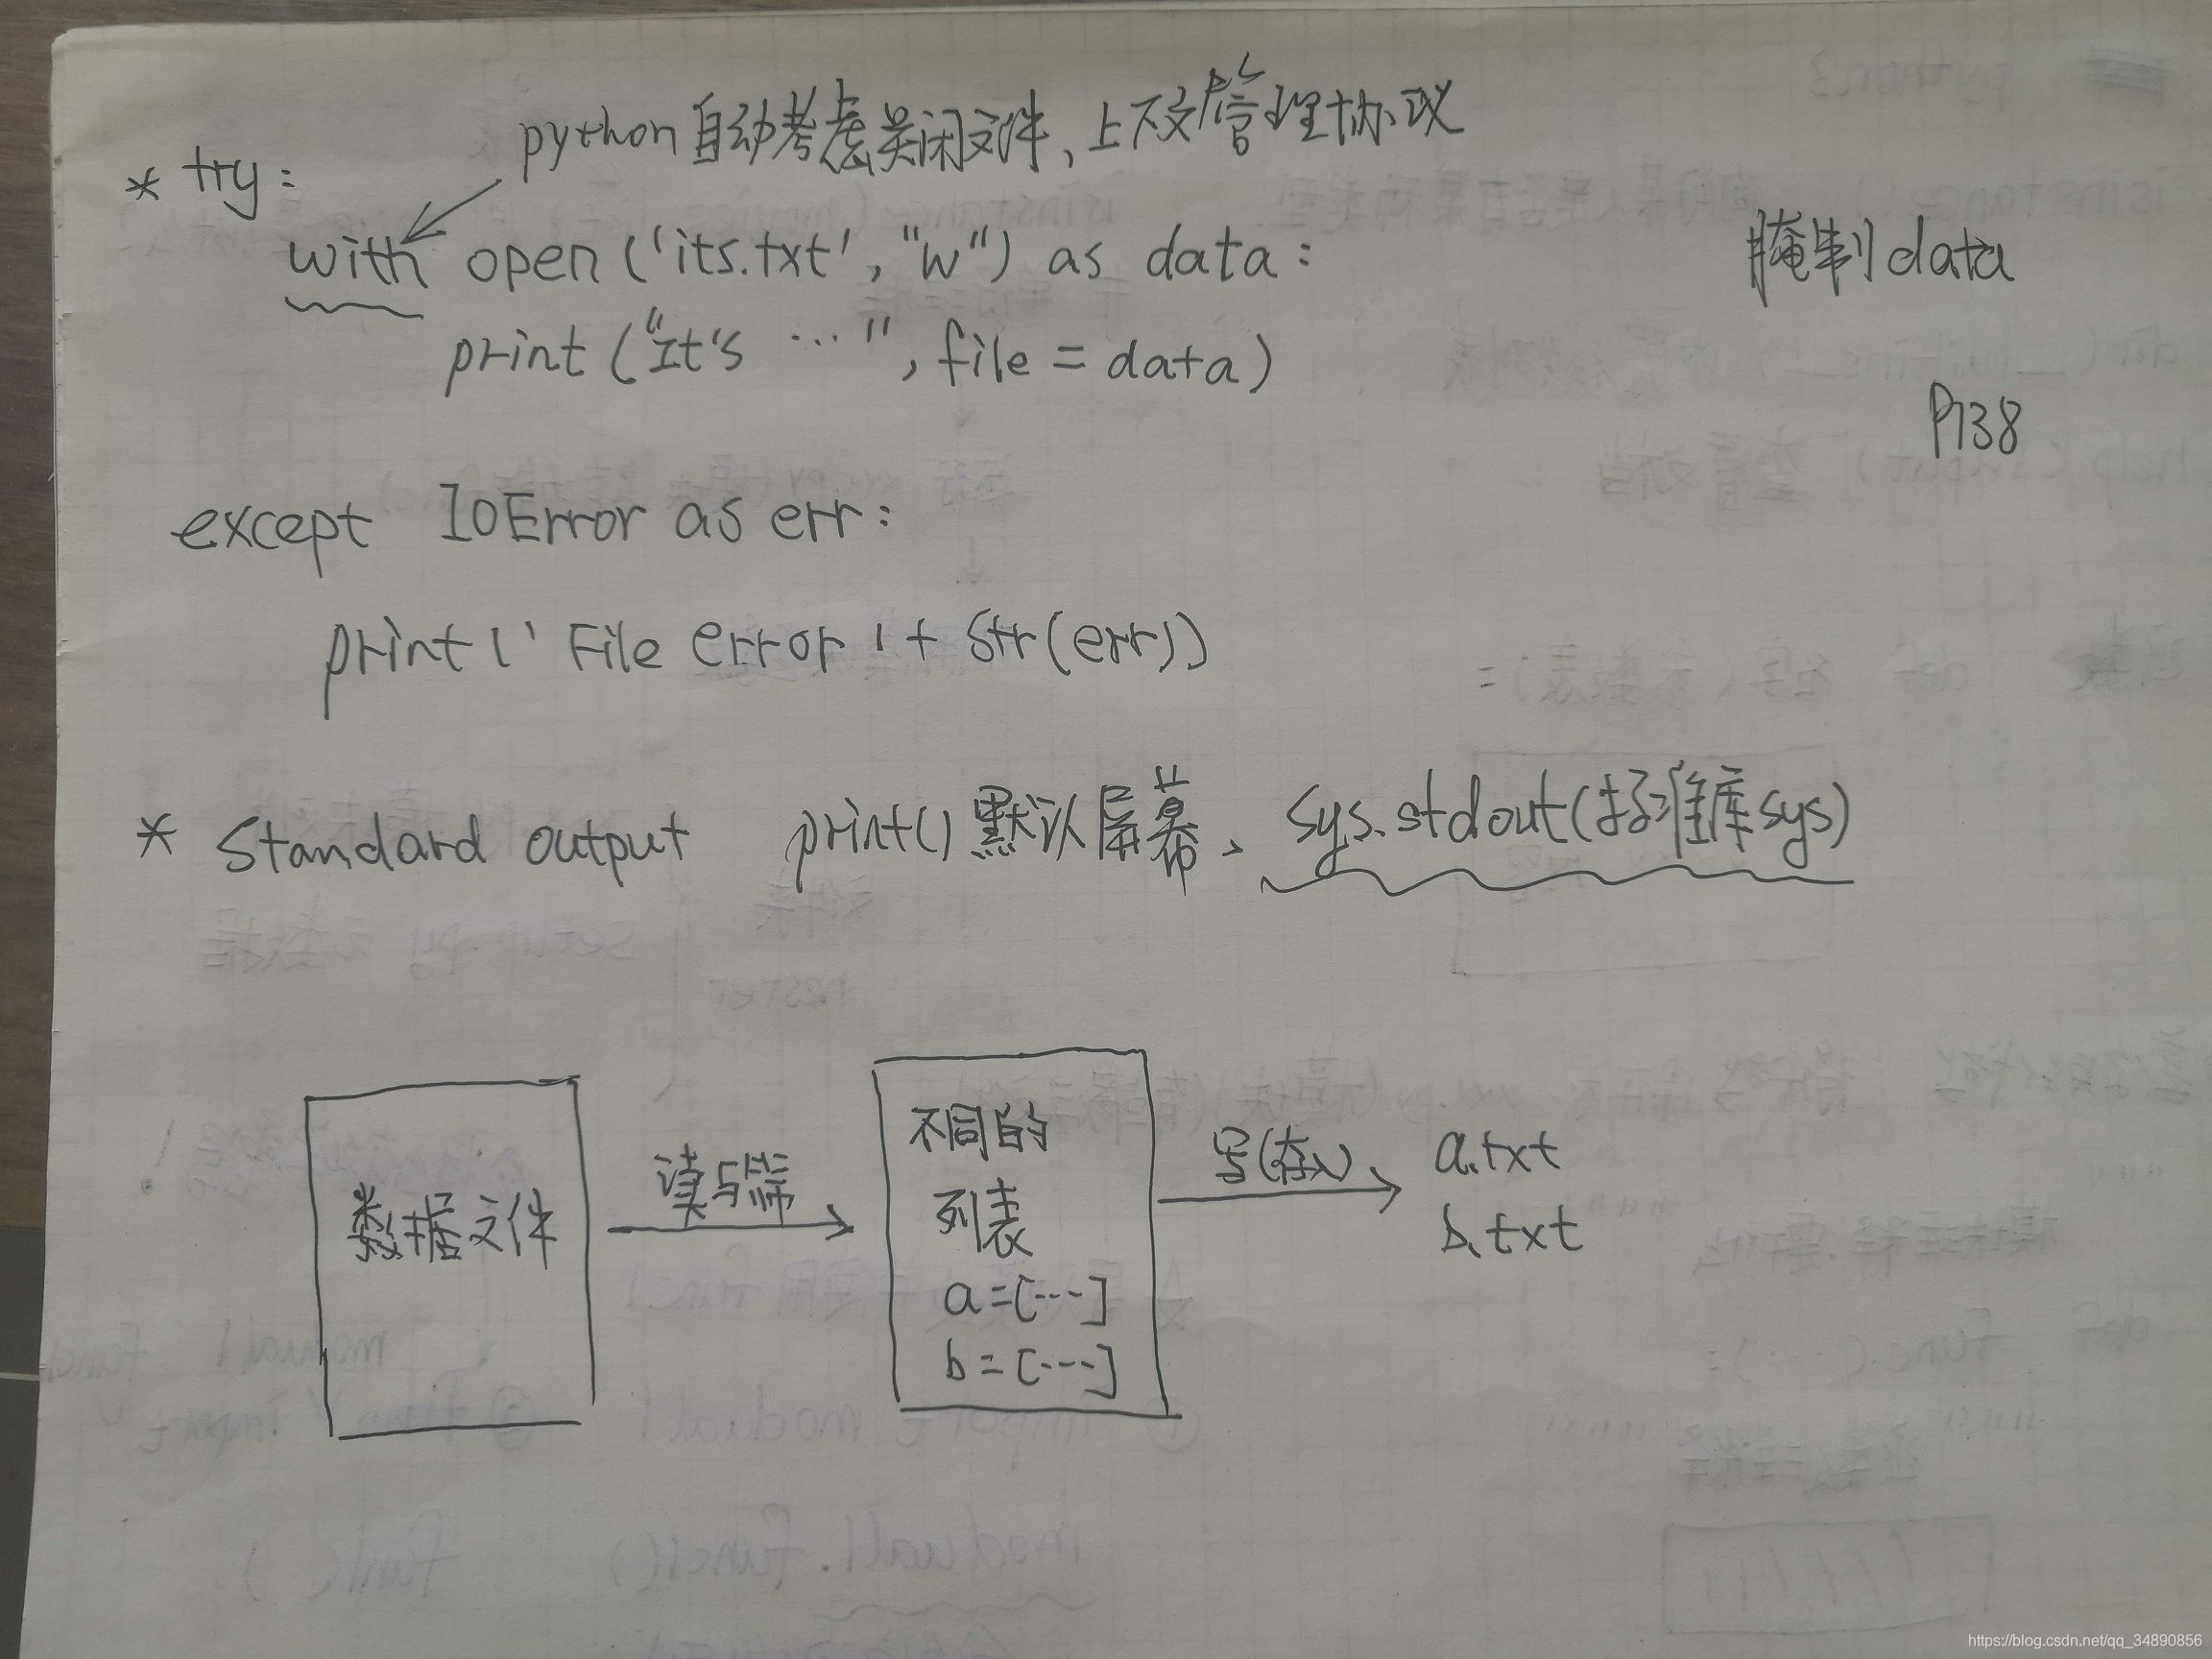 python自动考虑关闭文件、上下文管理协议
* try:
with open ('its.txt', "w") as data:
腌制data
print ("It's ...", file = data)
P138
except IOError as err:
print (' File error ' + str(err))
* Standard output print()默认屏幕、sys.stdout(标准库sys)
数据文件
读与筛
不同的
列表
a=[...]
b=[...]
写(存入)
a.txt
b.txt
https://blog.csdn.net/qq_34890856